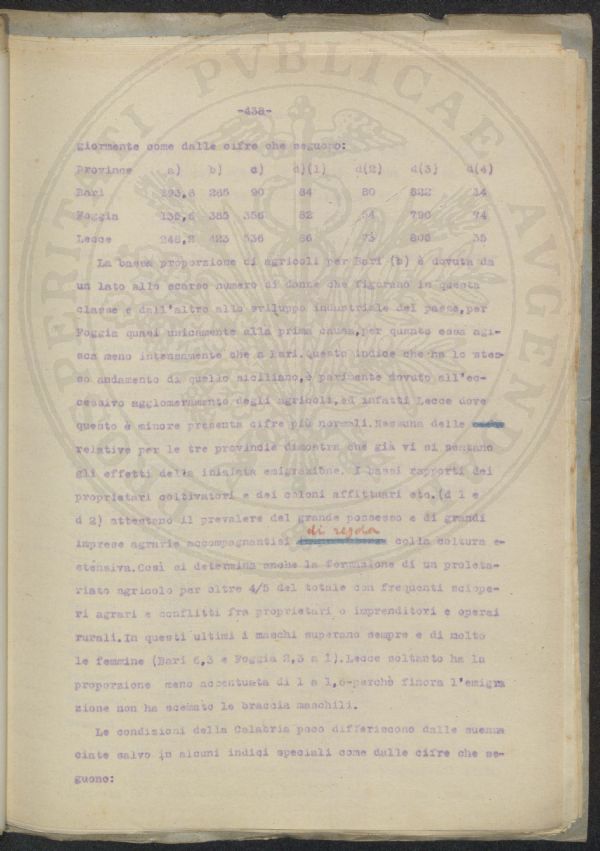 -438-
giormente come dalle cifre che seguono:
Province a) b) c) d)(1) d(2) d(3) d(4)
Bari 193,6 285 90 84 80 822 14
Foggia 385 356 82 54 790 74
Lecce 248,2 423 536 86 73 806 35
La bassa proporzione di agricoli per Bari (b) è dovuta da
un lato allo scarso numero di donne che figurano in questa
classe e dall'altro allo sviluppo industriale del paese,per
Foggia quasi unicamente alla prima causa,per quanto essa agi-
sca meno intensamente che a Bari.Questo indice che ha lo stes-
so andamento di quello siciliano,è parimente dovuto all'ec-
cessivo agglomeramento degli agricoli,ed infatti Lecce dove
questo è minore presenta cifre più normali.Nessuna delle
relative per le tre provincie dimostra che già vi si sentano
gli effetti della iniziata emigrazione. I bassi rapporti dei
proprietari coltivatori e dei coloni affittuari etc.(d 1 e
d 2) attestano il prevalere del grande possesso e di grandi
imprese agrarie accompagnantisi di regola colla coltura e-
stensiva.Così si determina anche la formazione di un proleta-
riato agricolo per oltre 4/5 del totale con frequenti sciope-
ri agrari e conflitti fra proprietari o imprenditori e operai
rurali.In questi ultimi i maschi superano sempre e di molto
le femmine (Bari 6,3 e Foggia 2,3 a 1).Lecce soltanto ha la
proporzione meno accentuata di 1 a 1,6-perchè finora l'emigra
zione non ha scemato le braccia maschili.
Le condizioni della Calabria poco differiscono dalle suenun
ciate salvo in alcuni indici speciali come dalle cifre che se-
guono:
PVBLICAE